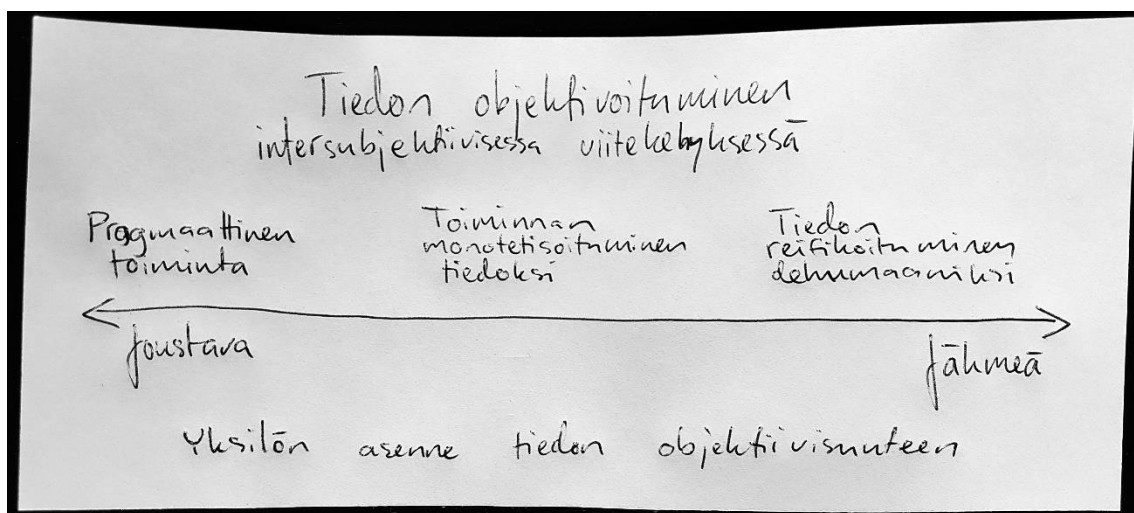 Tiedon objektivoituminen
intersubjektiivisessa viitekehyksessä
Pragmaattinen
toiminta
Toiminnan
monotetisoituminen
tiedoksi
Tiedon
reifikoituminen
dehumaaniksi
Joustava
Jähmeä
Yksilön asenne tiedon objektiivisuuteen